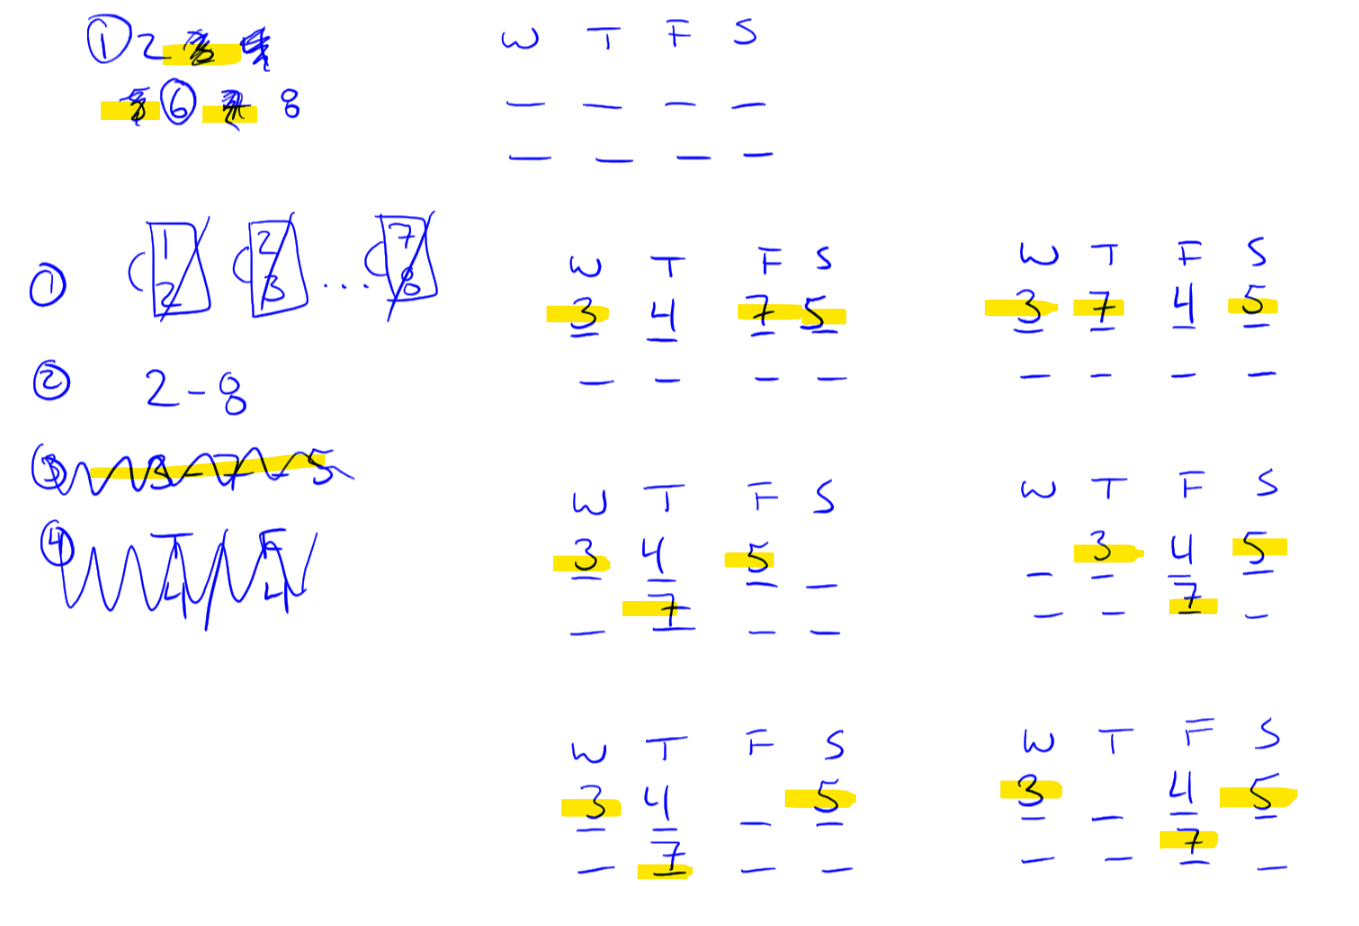 ① 2 3 4
5 ⑥ 7 8
W T F S
_ _ _ _
_ _ _ _
① 1 2 3 ... 7
2 3 8
② 2 - 8
③ 3 - 7 - 5
④ T F
4 / 4
W T F S
3 4 7 5
_ _ _ _
W T F S
3 7 4 5
_ _ _ _
W T F S
3 4 5 _
_ 7 _ _
W T F S
_ 3 4 5
_ _ 7 _
W T F S
3 4 _ 5
_ 7 _ _
W T F S
3 _ 4 5
_ _ 7 _